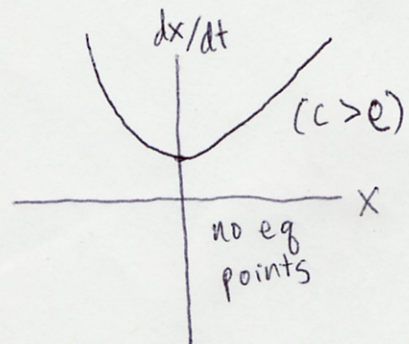 dx/dt
(c > e)
X
no eq
points